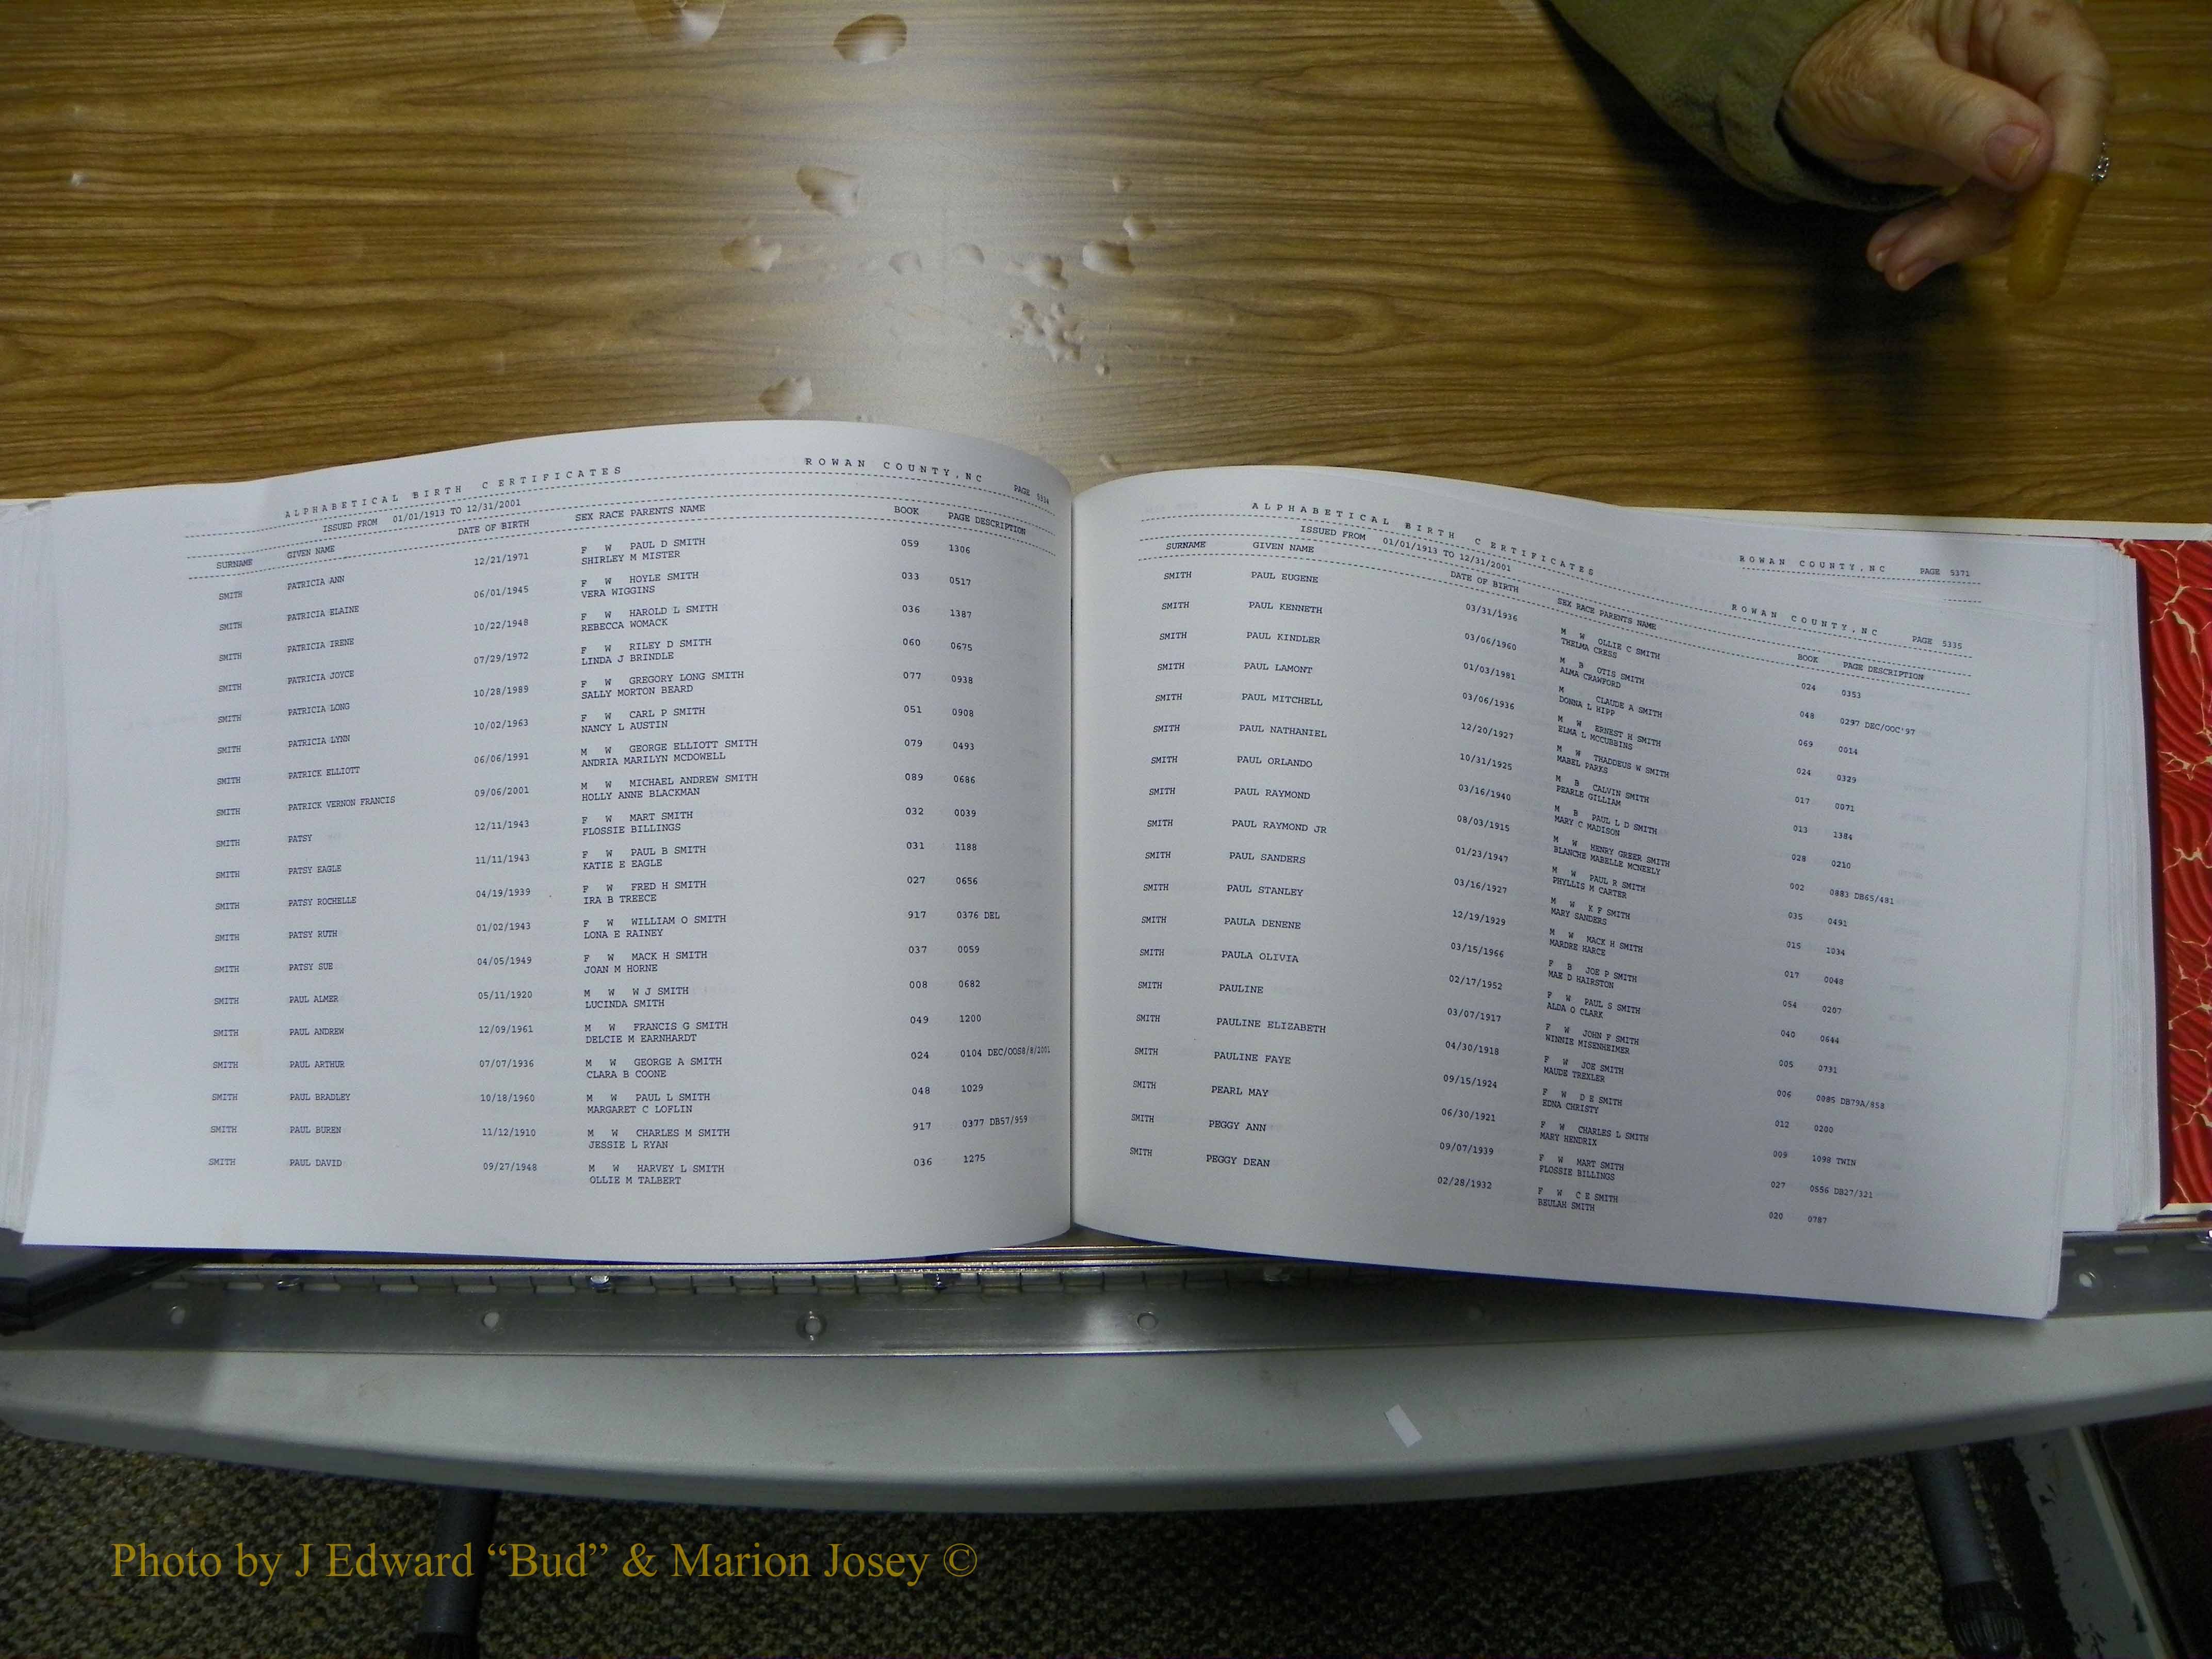 ALPHABETICAL BIRTH CERTIFICATES ROWAN COUNTY,NC PAGE 5334
ISSUED FROM 01/01/1913 TO 12/31/2001
SURNAME GIVEN NAME DATE OF BIRTH SEX RACE PARENTS NAME BOOK PAGE DESCRIPTION
SMITH PATRICIA ANN 12/21/1971 F W PAUL D SMITH 059 1306
SHIRLEY M MISTER
SMITH PATRICIA ELAINE 06/01/1945 F W HOYLE SMITH 033 0517
VERA WIGGINS
SMITH PATRICIA IRENE 10/22/1948 F W HAROLD L SMITH 036 1387
REBECCA WOMACK
SMITH PATRICIA JOYCE 07/29/1972 F W RILEY D SMITH 060 0675
LINDA J BRINDLE
SMITH PATRICIA LONG 10/28/1989 F W GREGORY LONG SMITH 077 0938
SALLY MORTON BEARD
SMITH PATRICIA LYNN 10/02/1963 F W CARL P SMITH 051 0908
NANCY L AUSTIN
SMITH PATRICK ELLIOTT 06/06/1991 M W GEORGE ELLIOTT SMITH 079 0493
ANDRIA MARILYN MCDOWELL
SMITH PATRICK VERNON FRANCIS 09/06/2001 M W MICHAEL ANDREW SMITH 089 0686
HOLLY ANNE BLACKMAN
SMITH PATSY 12/11/1943 F W MART SMITH 032 0039
FLOSSIE BILLINGS
SMITH PATSY EAGLE 11/11/1943 F W PAUL B SMITH 031 1188
KATIE E EAGLE
SMITH PATSY ROCHELLE 04/19/1939 F W FRED H SMITH 027 0656
IRA B TREECE
SMITH PATSY RUTH 01/02/1943 F W WILLIAM O SMITH 917 0376 DEL
LONA E RAINEY
SMITH PATSY SUE 04/05/1949 F W MACK H SMITH 037 0059
JOAN M HORNE
SMITH PAUL ALMER 05/11/1920 M W W J SMITH 008 0682
LUCINDA SMITH
SMITH PAUL ANDREW 12/09/1961 M W FRANCIS G SMITH 049 1200
DELCIE M EARNHARDT
SMITH PAUL ARTHUR 07/07/1936 M W GEORGE A SMITH 024 0104 DEC/OOS8/8/2001
CLARA B COONE
SMITH PAUL BRADLEY 10/18/1960 M W PAUL L SMITH 048 1029
MARGARET C LOFLIN
SMITH PAUL BUREN 11/12/1910 M W CHARLES M SMITH 917 0377 DB57/959
JESSIE L RYAN
SMITH PAUL DAVID 09/27/1948 M W HARVEY L SMITH 036 1275
OLLIE M TALBERT
ROWAN COUNTY,NC PAGE 5371
ALPHABETICAL BIRTH CERTIFICATES ROWAN COUNTY,NC PAGE 5335
ISSUED FROM 01/01/1913 TO 12/31/2001
SURNAME GIVEN NAME DATE OF BIRTH SEX RACE PARENTS NAME BOOK PAGE DESCRIPTION
SMITH PAUL EUGENE 03/31/1936 M W OLLIE C SMITH 024 0353
THELMA CRESS
SMITH PAUL KENNETH 03/06/1960 M B OTIS SMITH 048 0297 DEC/OOC'97
ALMA CRAWFORD
SMITH PAUL KINDLER 01/03/1981 M CLAUDE A SMITH 069 0014
DONNA L HIPP
SMITH PAUL LAMONT 03/06/1936 M W ERNEST H SMITH 024 0329
ELMA L MCCUBBINS
SMITH PAUL MITCHELL 12/20/1927 M W THADDEUS W SMITH 017 0071
MABEL PARKS
SMITH PAUL NATHANIEL 10/31/1925 M B CALVIN SMITH 013 1384
PEARLE GILLIAM
SMITH PAUL ORLANDO 03/16/1940 M B PAUL L D SMITH 028 0210
MARY C MADISON
SMITH PAUL RAYMOND 08/03/1915 M W HENRY GREER SMITH 002 0883 DB65/481
BLANCHE MABELLE MCNEELY
SMITH PAUL RAYMOND JR 01/23/1947 M W PAUL R SMITH 035 0491
PHYLLIS M CARTER
SMITH PAUL SANDERS 03/16/1927 M W F SMITH 015 1034
MARY SANDERS
SMITH PAUL STANLEY 12/19/1929 M W MACK H SMITH 017 0048
MARDRE HARCE
SMITH PAULA DENENE 03/15/1966 F B JOE P SMITH 054 0207
MAE D HAIRSTON
SMITH PAULA OLIVIA 02/17/1952 F W PAUL S SMITH 040 0644
ALDA O CLARK
SMITH PAULINE 03/07/1917 F W JOHN F SMITH 005 0731
WINNIE MISENHEIMER
SMITH PAULINE ELIZABETH 04/30/1918 F W JOE SMITH 006 0085 DB79A/858
MAUDE TREXLER
SMITH PAULINE FAYE 09/15/1924 F W D E SMITH 012 0200
EDNA CHRISTY
SMITH PEARL MAY 06/30/1921 F W CHARLES L SMITH 009 1098 TWIN
MARY HENDRIX
SMITH PEGGY ANN 09/07/1939 F W MART SMITH 027 0556 DB27/321
FLOSSIE BILLINGS
SMITH PEGGY DEAN 02/28/1932 F W C E SMITH 020 0787
BEULAH SMITH
Photo by J Edward “Bud” & Marion Josey ©